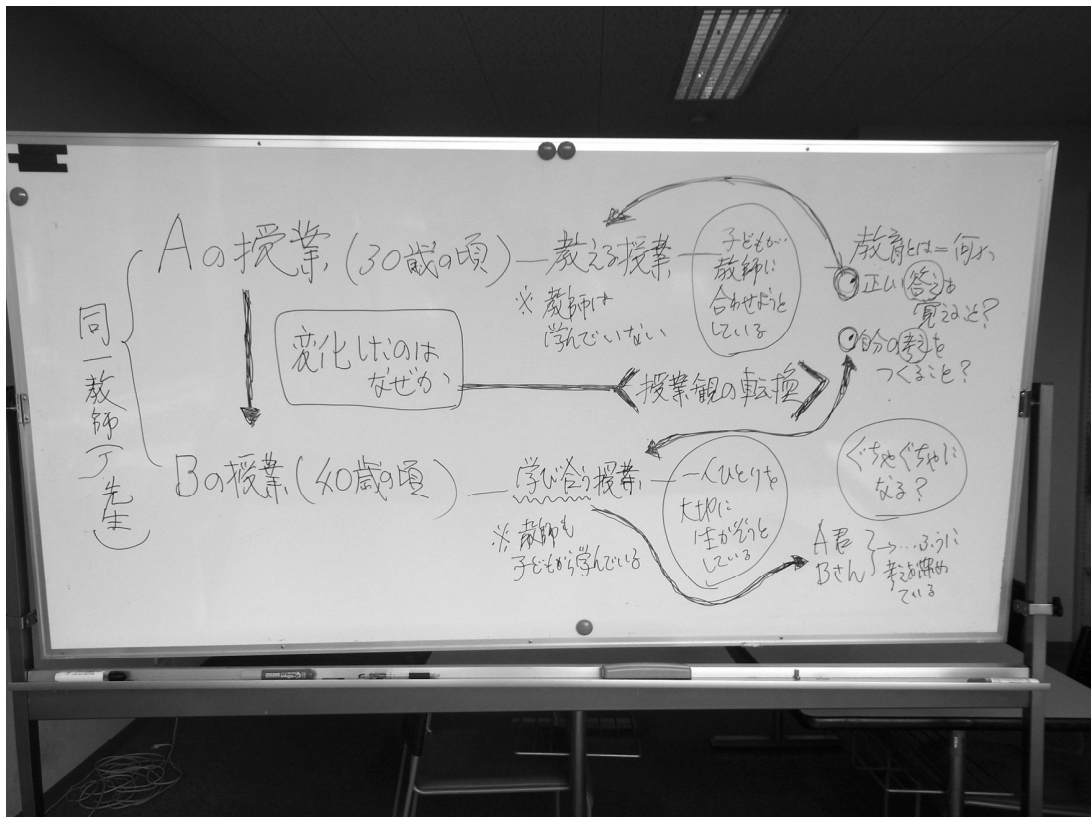 同一教師(T先生)
Aの授業(30歳の頃)
教える授業
※教師は
学んでいない
子どもが
教師に
合わせようと
している
教育とは=何か
正しい答えを
覚えること?
自分の考えを
つくること?
変化したのは
なぜか
授業観の転換
Bの授業(40歳の頃)
学び合う授業
※教師も
子どもから学んでいる
一人ひとりを
大切に
生かそうと
している
ぐちゃぐちゃに
なる?
A君
Bさん
→…ふうに
考えを深め
ている